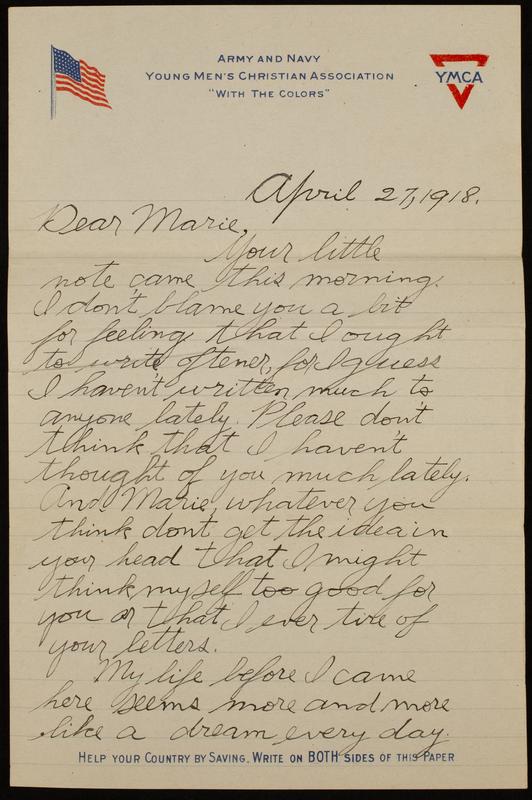 ARMY AND NAVY
YOUNG MEN'S CHRISTIAN ASSOCIATION
"WITH THE COLORS"
YMCA
April 27, 1918.
Dear Marie,
Your little
note came this morning.
I don't blame you a bit
for feeling that I ought
to write oftener, for I guess
I haven't written much to
anyone lately. Please don't
think that I haven't
thought of you much lately.
And Marie, whatever you
think dont get the idea in
your head that I might
think myself too good for
you or that I ever tire of
your letters.
My life before I came
here seems more and more
like a dream every day.
HELP YOUR COUNTRY BY SAVING. WRITE ON BOTH SIDES OF THIS PAPER